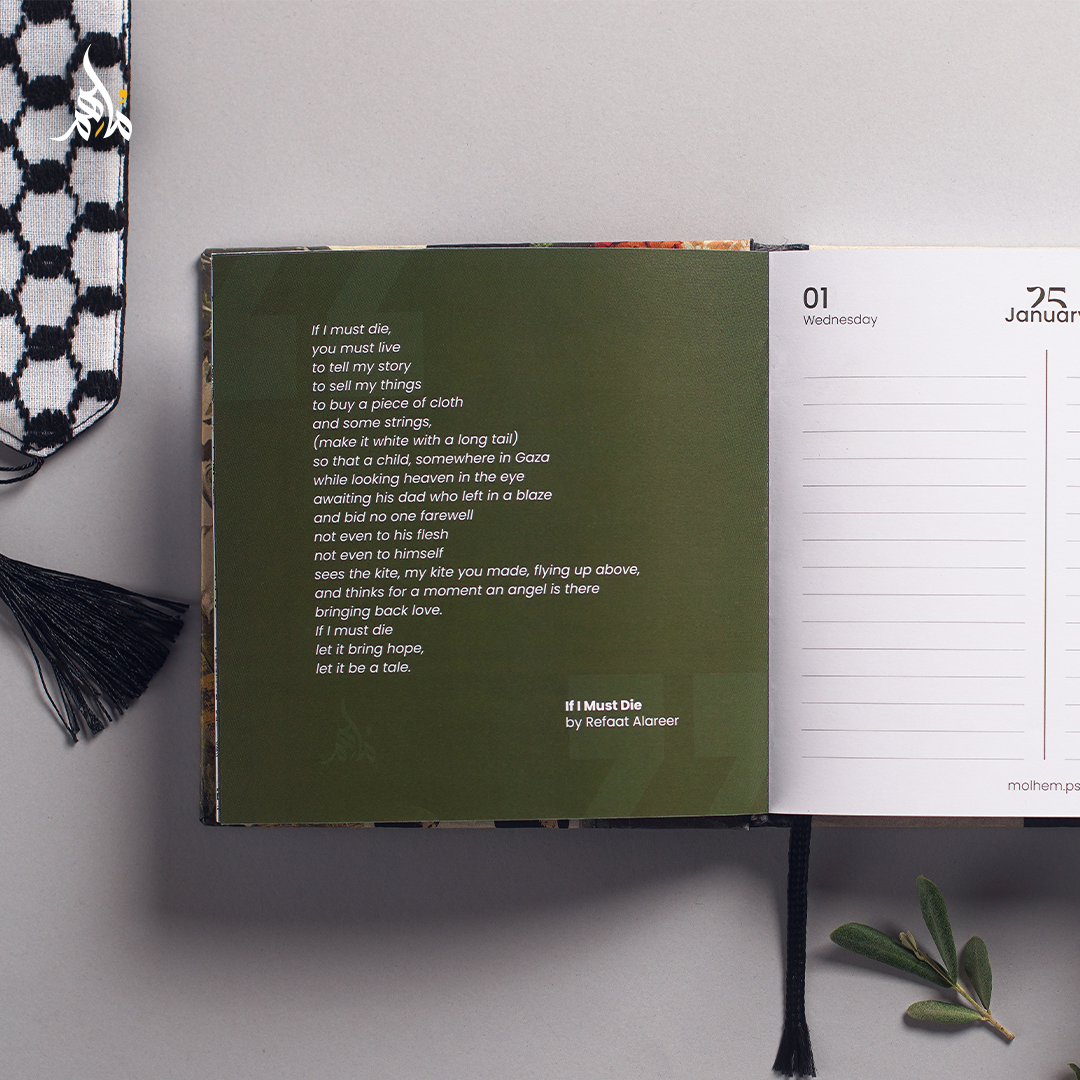 If I must die,
you must live
to tell my story
to sell my things
to buy a piece of cloth
and some strings,
(make it white with a long tail)
so that a child, somewhere in Gaza
while looking heaven in the eye
awaiting his dad who left in a blaze
and bid no one farewell
not even to his flesh
not even to himself
sees the kite, my kite you made, flying up above,
and thinks for a moment an angel is there
bringing back love.
If I must die
let it bring hope,
let it be a tale.
If I Must Die
by Refaat Alareer
01
Wednesday
25
January
molhem.ps